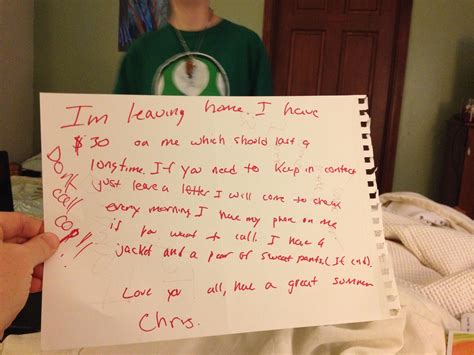 Im leaving home. I have
$30 on me which should last a
longtime. If you need to keep in contact
just leave a letter I will come to check
every morning. I have my phone on me
if you want to call. I have a
jacket and a pair of sweat pants. (If cold).
Love you all, have a great summer
Chris.
Dont
call
cops!!